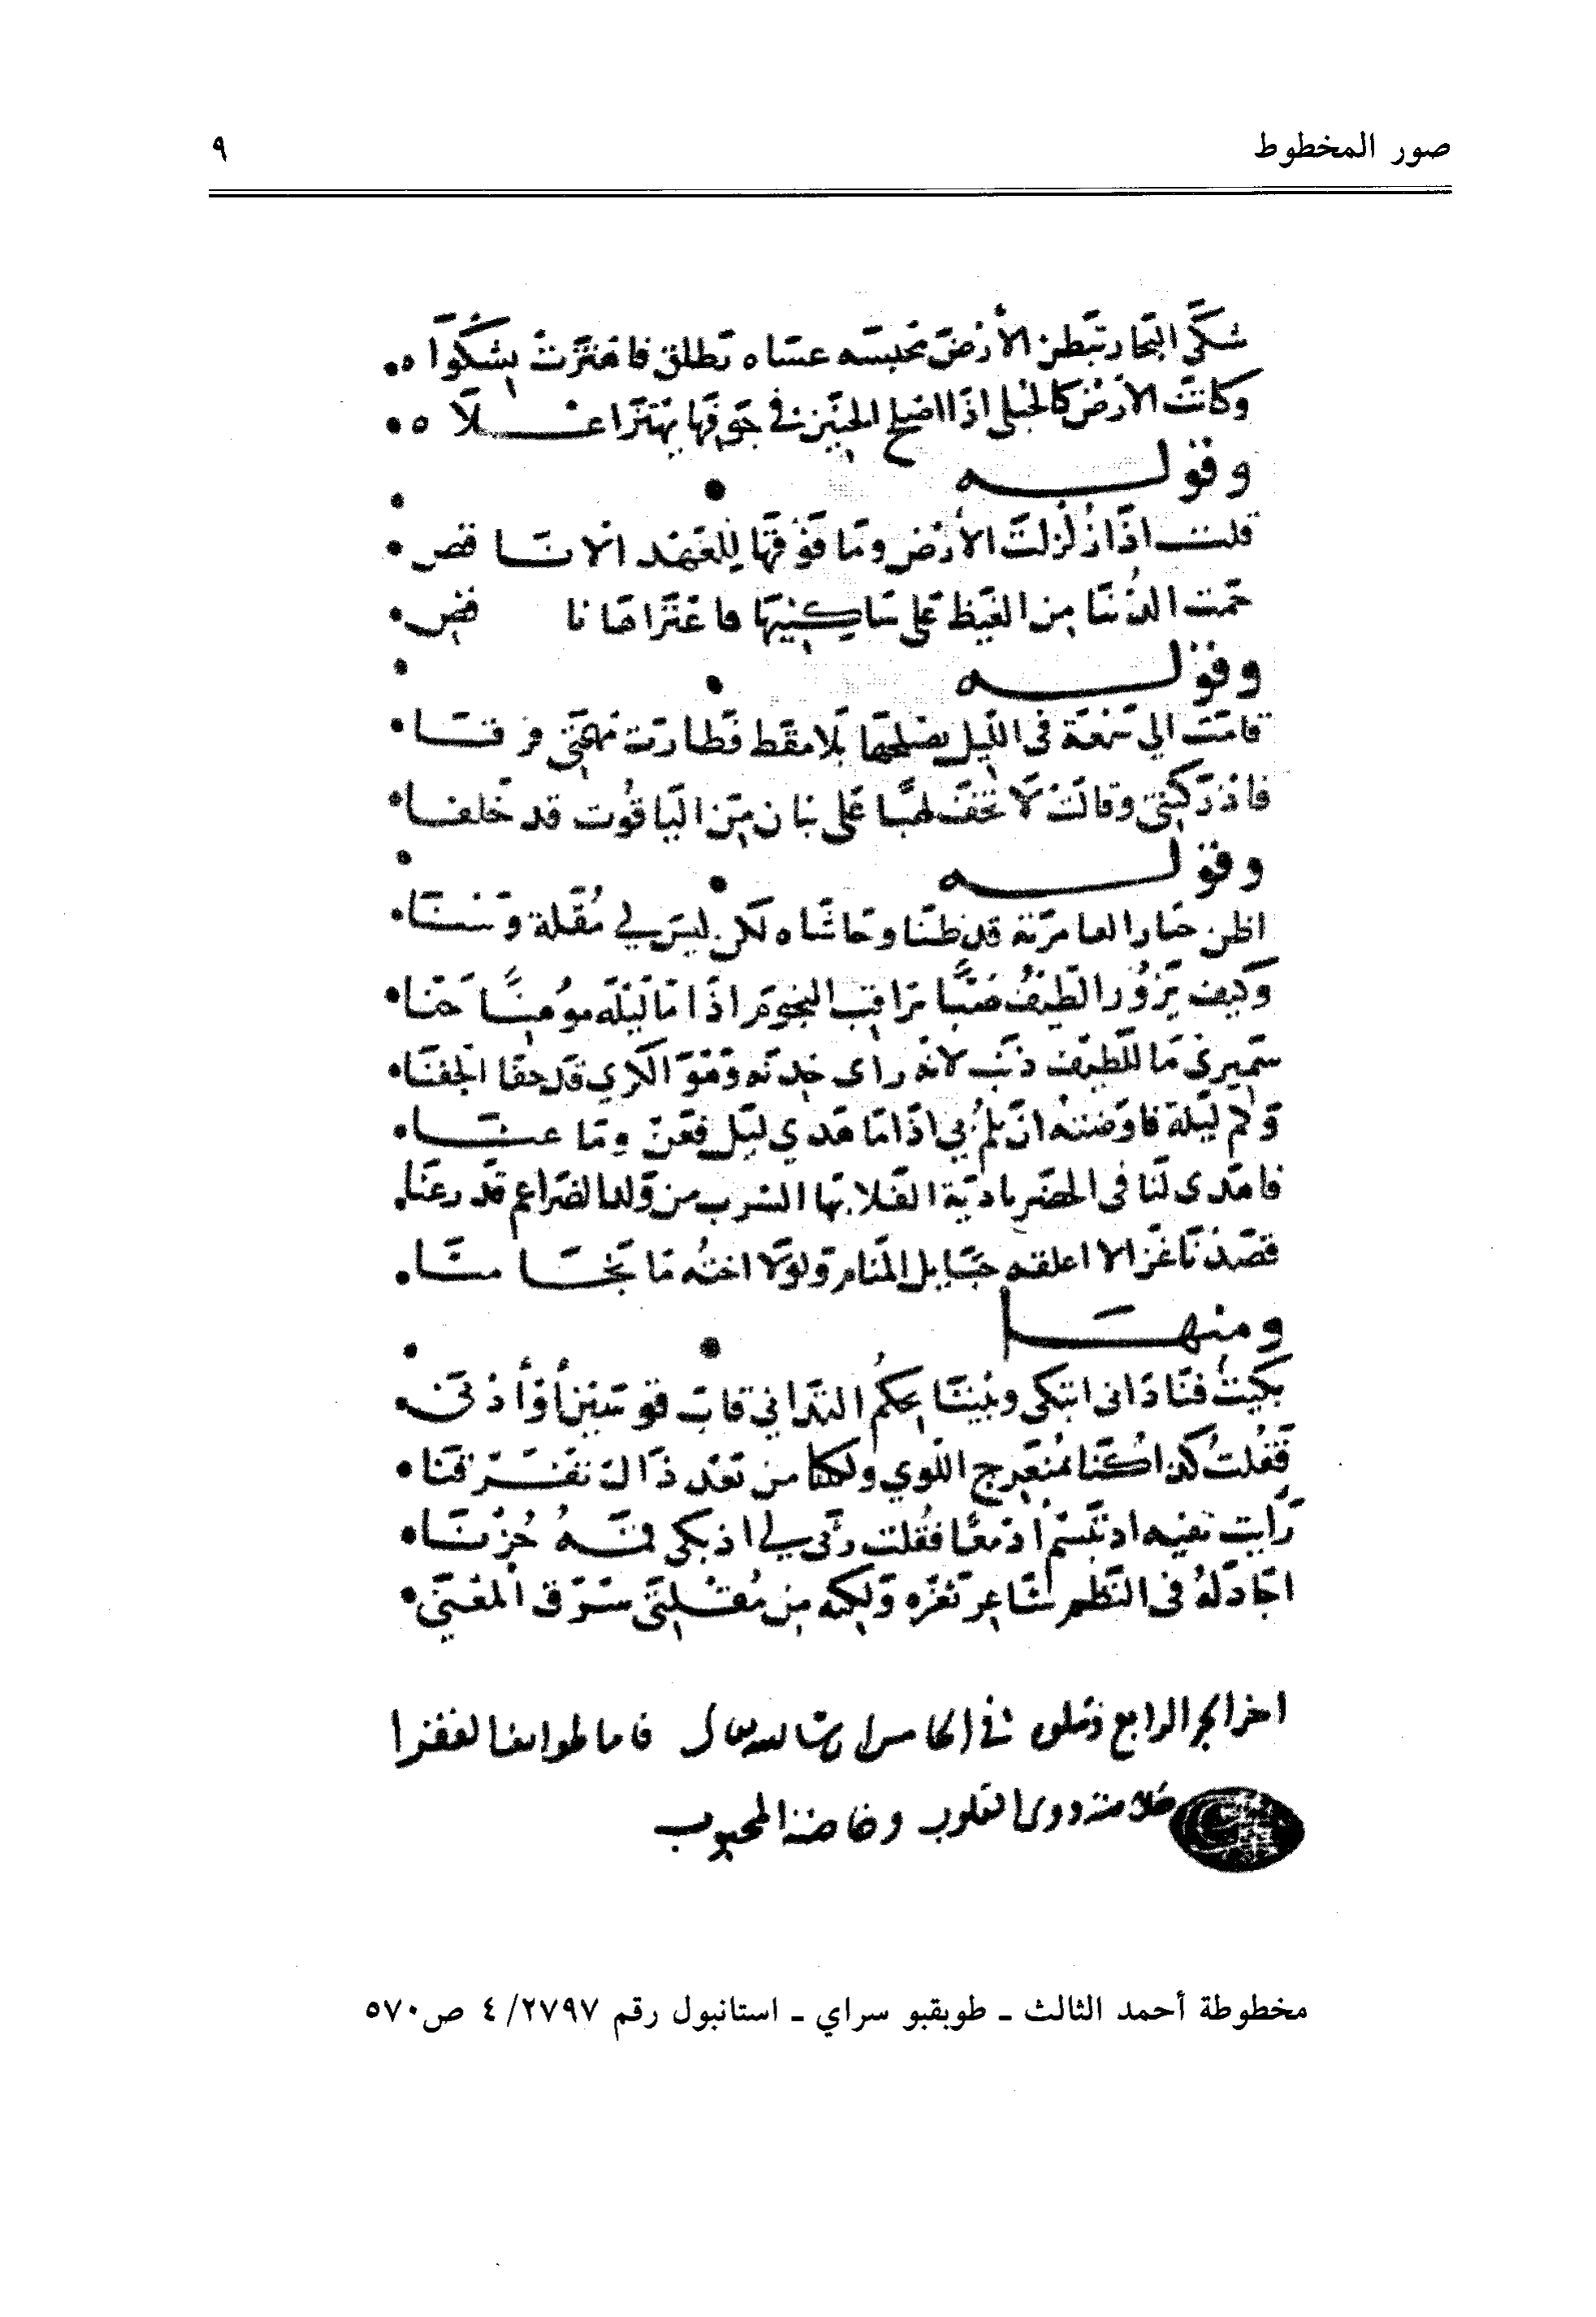 صور المخطوط ٩
شكى البخار تبطن الأرض تحبسه عساه تطلق فاهتزت بشكواه
وكانت الأرض كالحبلى اذا اضح الجنين في جوفها تهتز اعـلاه
وقولـه
قلت اذا زلزلت الأرض وما فوقها للعهد الانـا قص
حمت الدنيا من الغيظ على ساكنيها فاعتراها نا فض
وقولـه
قامت الى شمعة في الليل تصلحها بلا مقط فطارت مهجتي فرقـا
وقالت لا تخف لهبا على بنان من الياقوت قد خلقـا
وقولـه
اظن خيار العامرية قد ظنا وحاشاه لكن ليس لي مقلة وسنـا
وكيف يزور الطيف صبا يراقب النجوم اذا ما ليله موهنا جنا
سميري ما للطيف ذنب لانه راى خدنه وهو الكرى قد جفا الجفنا
وكم ليلة فاوضته ان يلم بي اذا ما هدي ليل فعن وما عنـا
فاهدى لنا في الحضر بادية الفلا بها السرب من قد رعنا
فصدنا غزالا اعلقه حبايل المنام ولولا اخته ما نجـا منـا
ومنهـا
بكيت فنادانى اتبكي وبيننا بحكم التداني قاب قوسين أو أدنى
فقلت كذا كنا بمنعرج اللوي ولكننا من بعد ذاك تفـرقنا
رايت بفيه اذ تبسم أدمعا فقلت رثى لي اذ بكى فمـه حزنـا
اجادله في النظم لشاعر ثغره ولكنه من مقـلتي سـرق المعنى
اخر الجز الرابع وتتلوه في الخامس ان شا الله تعالى
المحبوب
مخطوطة أحمد الثالث ـ طوبقبو سراي ـ استانبول رقم ٢٧٩٧/ ٤ ص٥٧٠